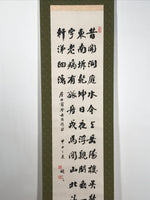 昔聞洞庭水今上岳陽樓吳楚
東南坼乾坤日夜浮親朋無一
字老病有孤舟戎馬關山北憑
軒涕泗流